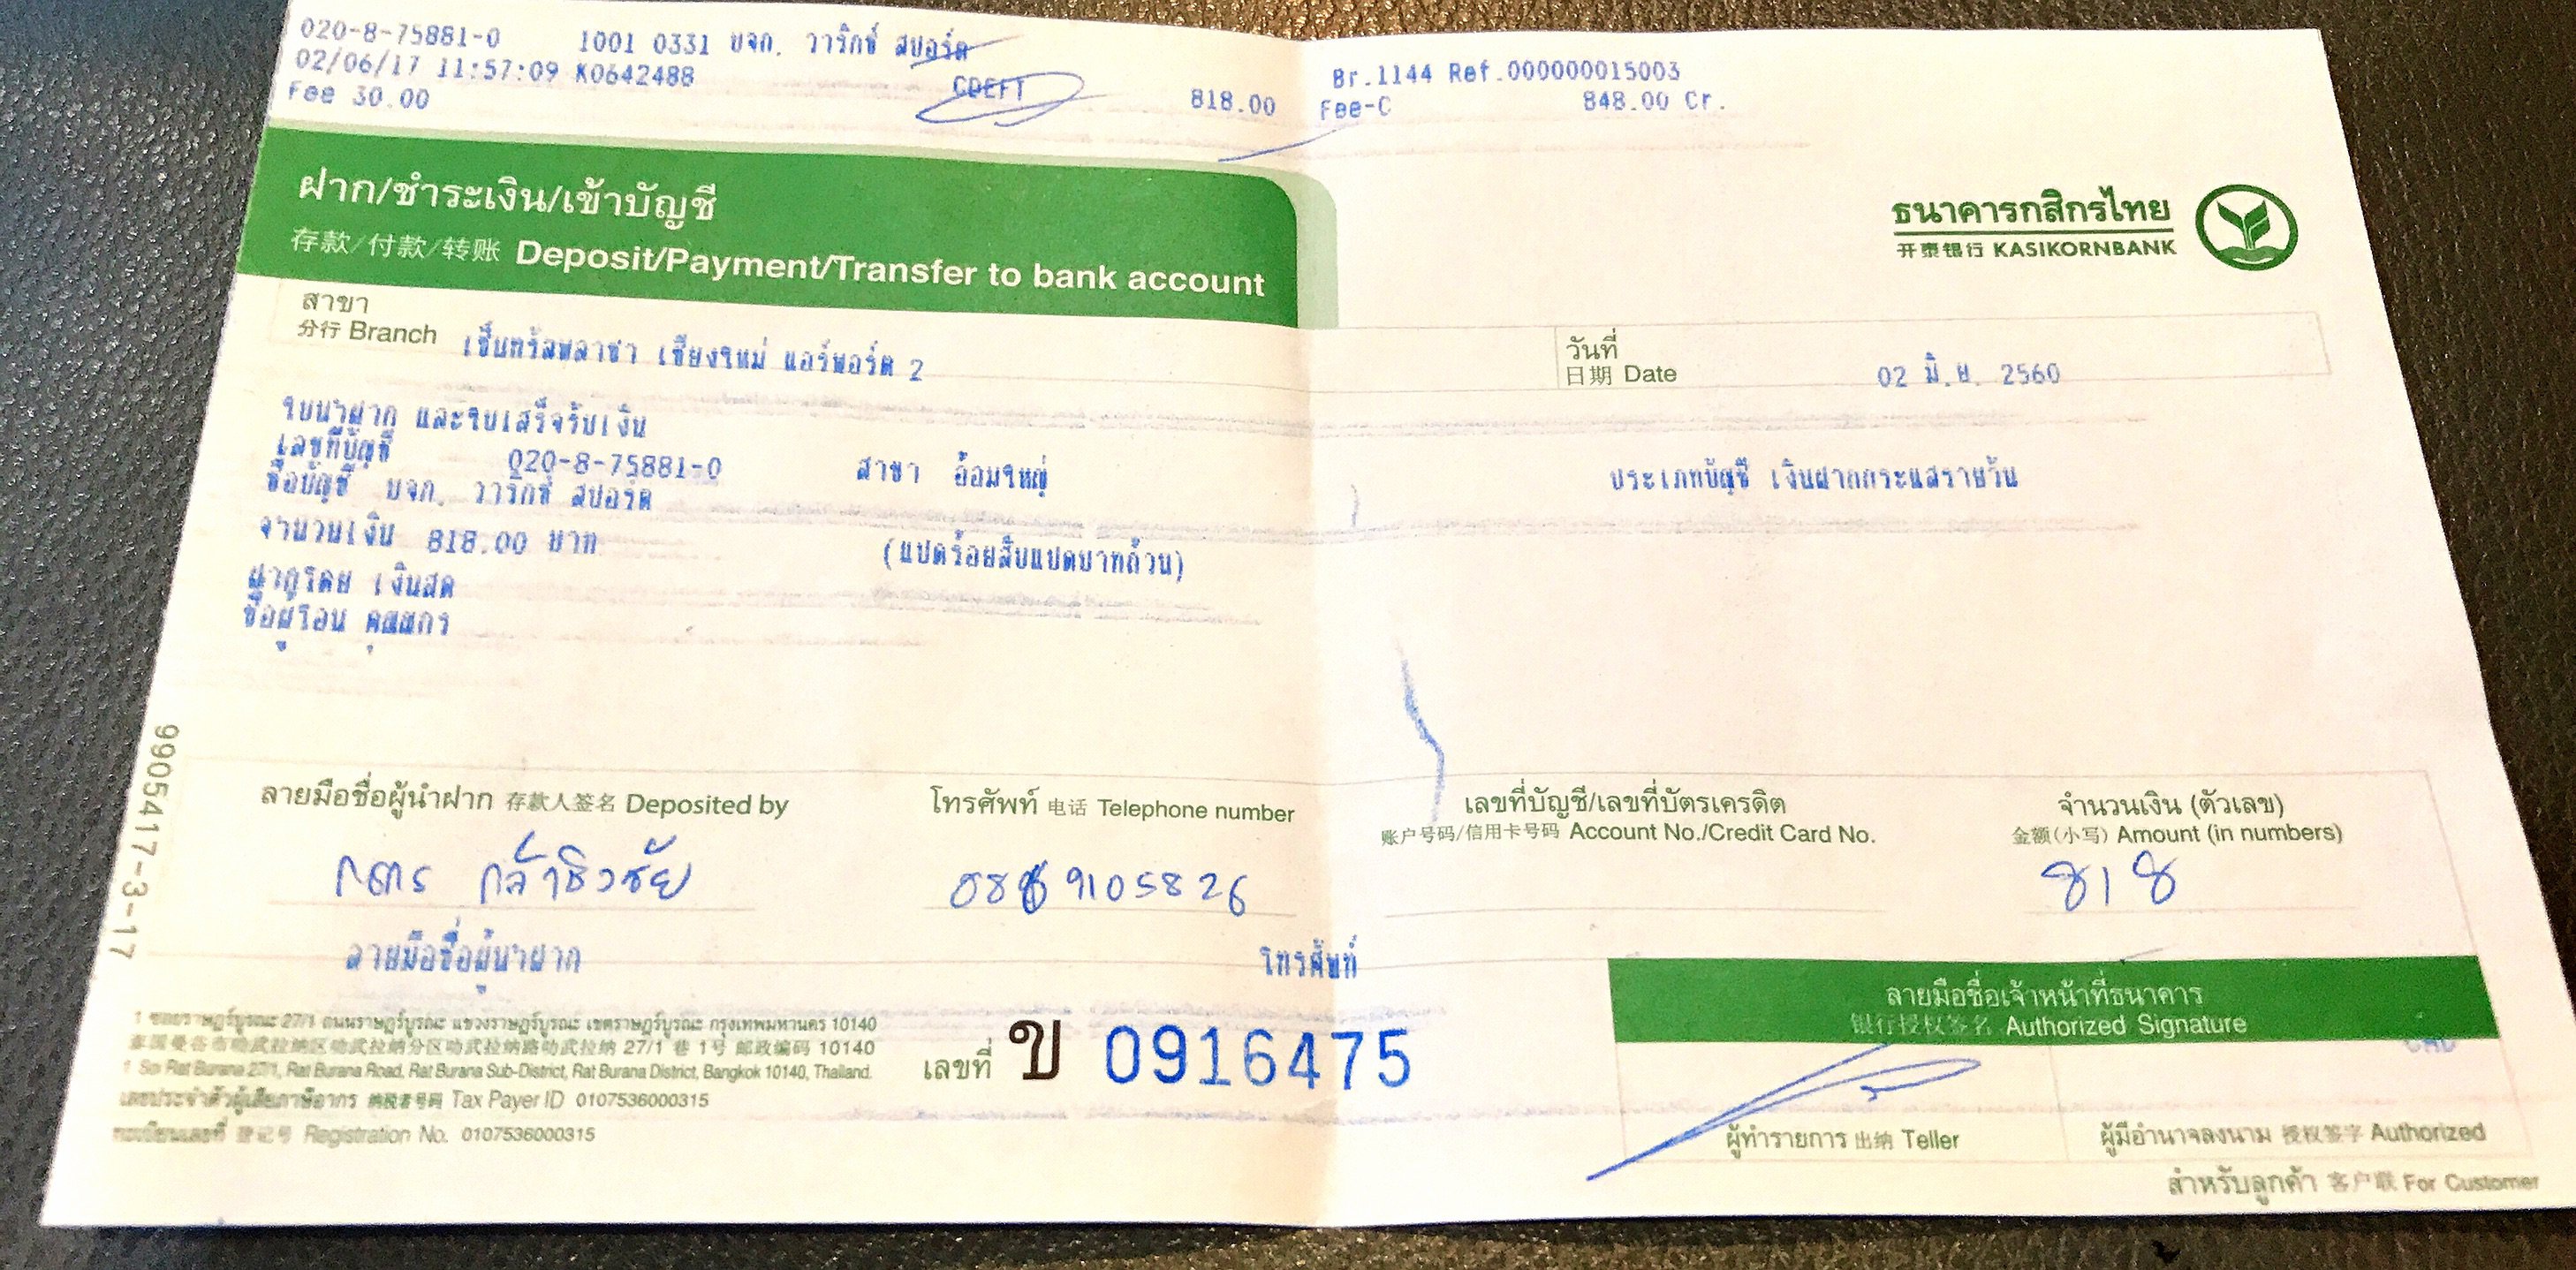 020-8-75881-0 1001 0331 บจก. วาริกซ์ สปอร์ต
02/06/17 11:57:09 K0642488 CDEFT 818.00 Br.1144 Ref.000000015003
Fee 30.00 Fee-C 848.00 Cr.
ฝาก/ชำระเงิน/เข้าบัญชี
存款/付款/转账 Deposit/Payment/Transfer to bank account
ธนาคารกสิกรไทย
开泰银行 KASIKORNBANK
สาขา
分行 Branch เซ็นทรัลพลาซา เชียงใหม่ แอร์พอร์ต 2
วันที่
日期 Date 02 มิ.ย. 2560
ใบนำฝาก และใบเสร็จรับเงิน
เลขที่บัญชี 020-8-75881-0 สาขา อ้อมใหญ่ ประเภทบัญชี เงินฝากกระแสรายวัน
ชื่อบัญชี บจก. วาริกซ์ สปอร์ต
จำนวนเงิน 818.00 บาท (แปดร้อยสิบแปดบาทถ้วน)
เงินสด
ชื่อผู้โอน
9905417-3-17
ลายมือชื่อผู้นำฝาก 存款人签名 Deposited by
โทรศัพท์ 电话 Telephone number
เลขที่บัญชี/เลขที่บัตรเครดิต
账户号码/信用卡号码 Account No./Credit Card No.
จำนวนเงิน (ตัวเลข)
金额(小写) Amount (in numbers)
9105826
818
ลายมือชื่อผู้นำฝาก โทรศัพท์
1 ซอยราษฎร์บูรณะ 27/1 ถนนราษฎร์บูรณะ แขวงราษฎร์บูรณะ เขตราษฎร์บูรณะ กรุงเทพมหานคร 10140
泰国曼谷市叻武拉纳区叻武拉纳分区叻武拉纳路叻武拉纳 27/1 巷 1号 邮政编码 10140
1 Soi Rat Burana 27/1, Rat Burana Road, Rat Burana Sub-District, Rat Burana District, Bangkok 10140, Thailand.
เลขประจำตัวผู้เสียภาษีอากร 纳税者号码 Tax Payer ID 0107536000315
ทะเบียนเลขที่ 登记号 Registration No. 0107536000315
เลขที่ ข 0916475
ลายมือชื่อเจ้าหน้าที่ธนาคาร
银行授权签名 Authorized Signature
ผู้ทำรายการ 出纳 Teller
ผู้มีอำนาจลงนาม 授权签字 Authorized
สำหรับลูกค้า 客户联 For Customer